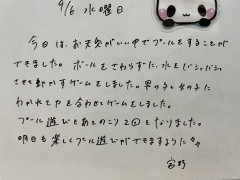 9/6 水曜日
今日は、お天気がいい中でプールをすることが
できました。ボールをさわらずに、水をバシャバシャ
させて動かすゲームをしました。男の子と女の子に
わかれて力を合わせてゲームをしました。
プール遊びもあとのこり2回となりました。
明日も楽しくプール遊びができますように